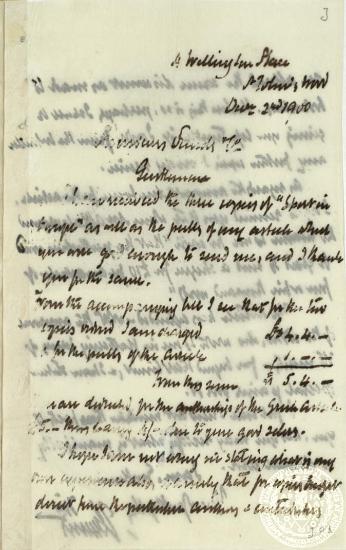 J
4 Wellington Place
St John's Wood
Decr 2nd 1900
Messieurs Sands & Co
Gentlemen
I have received the three copies of "Sport in
Europe" as well as the pulls of my article which
you were good enough to send me, and I thank
you for the same.
From the accompanying bill I see that for the two
copies ordered I am charged £4.4.—
& for the pulls of the article 1.–.–
From this sum £5.4.—
I am deducted for the authorship of the Greek article
£5.— thus leaving 4/- due to your good selves.
I hope I am not wrong in stating what is my
own experience also, namely that for copies bought
direct from the publisher authors & contributors